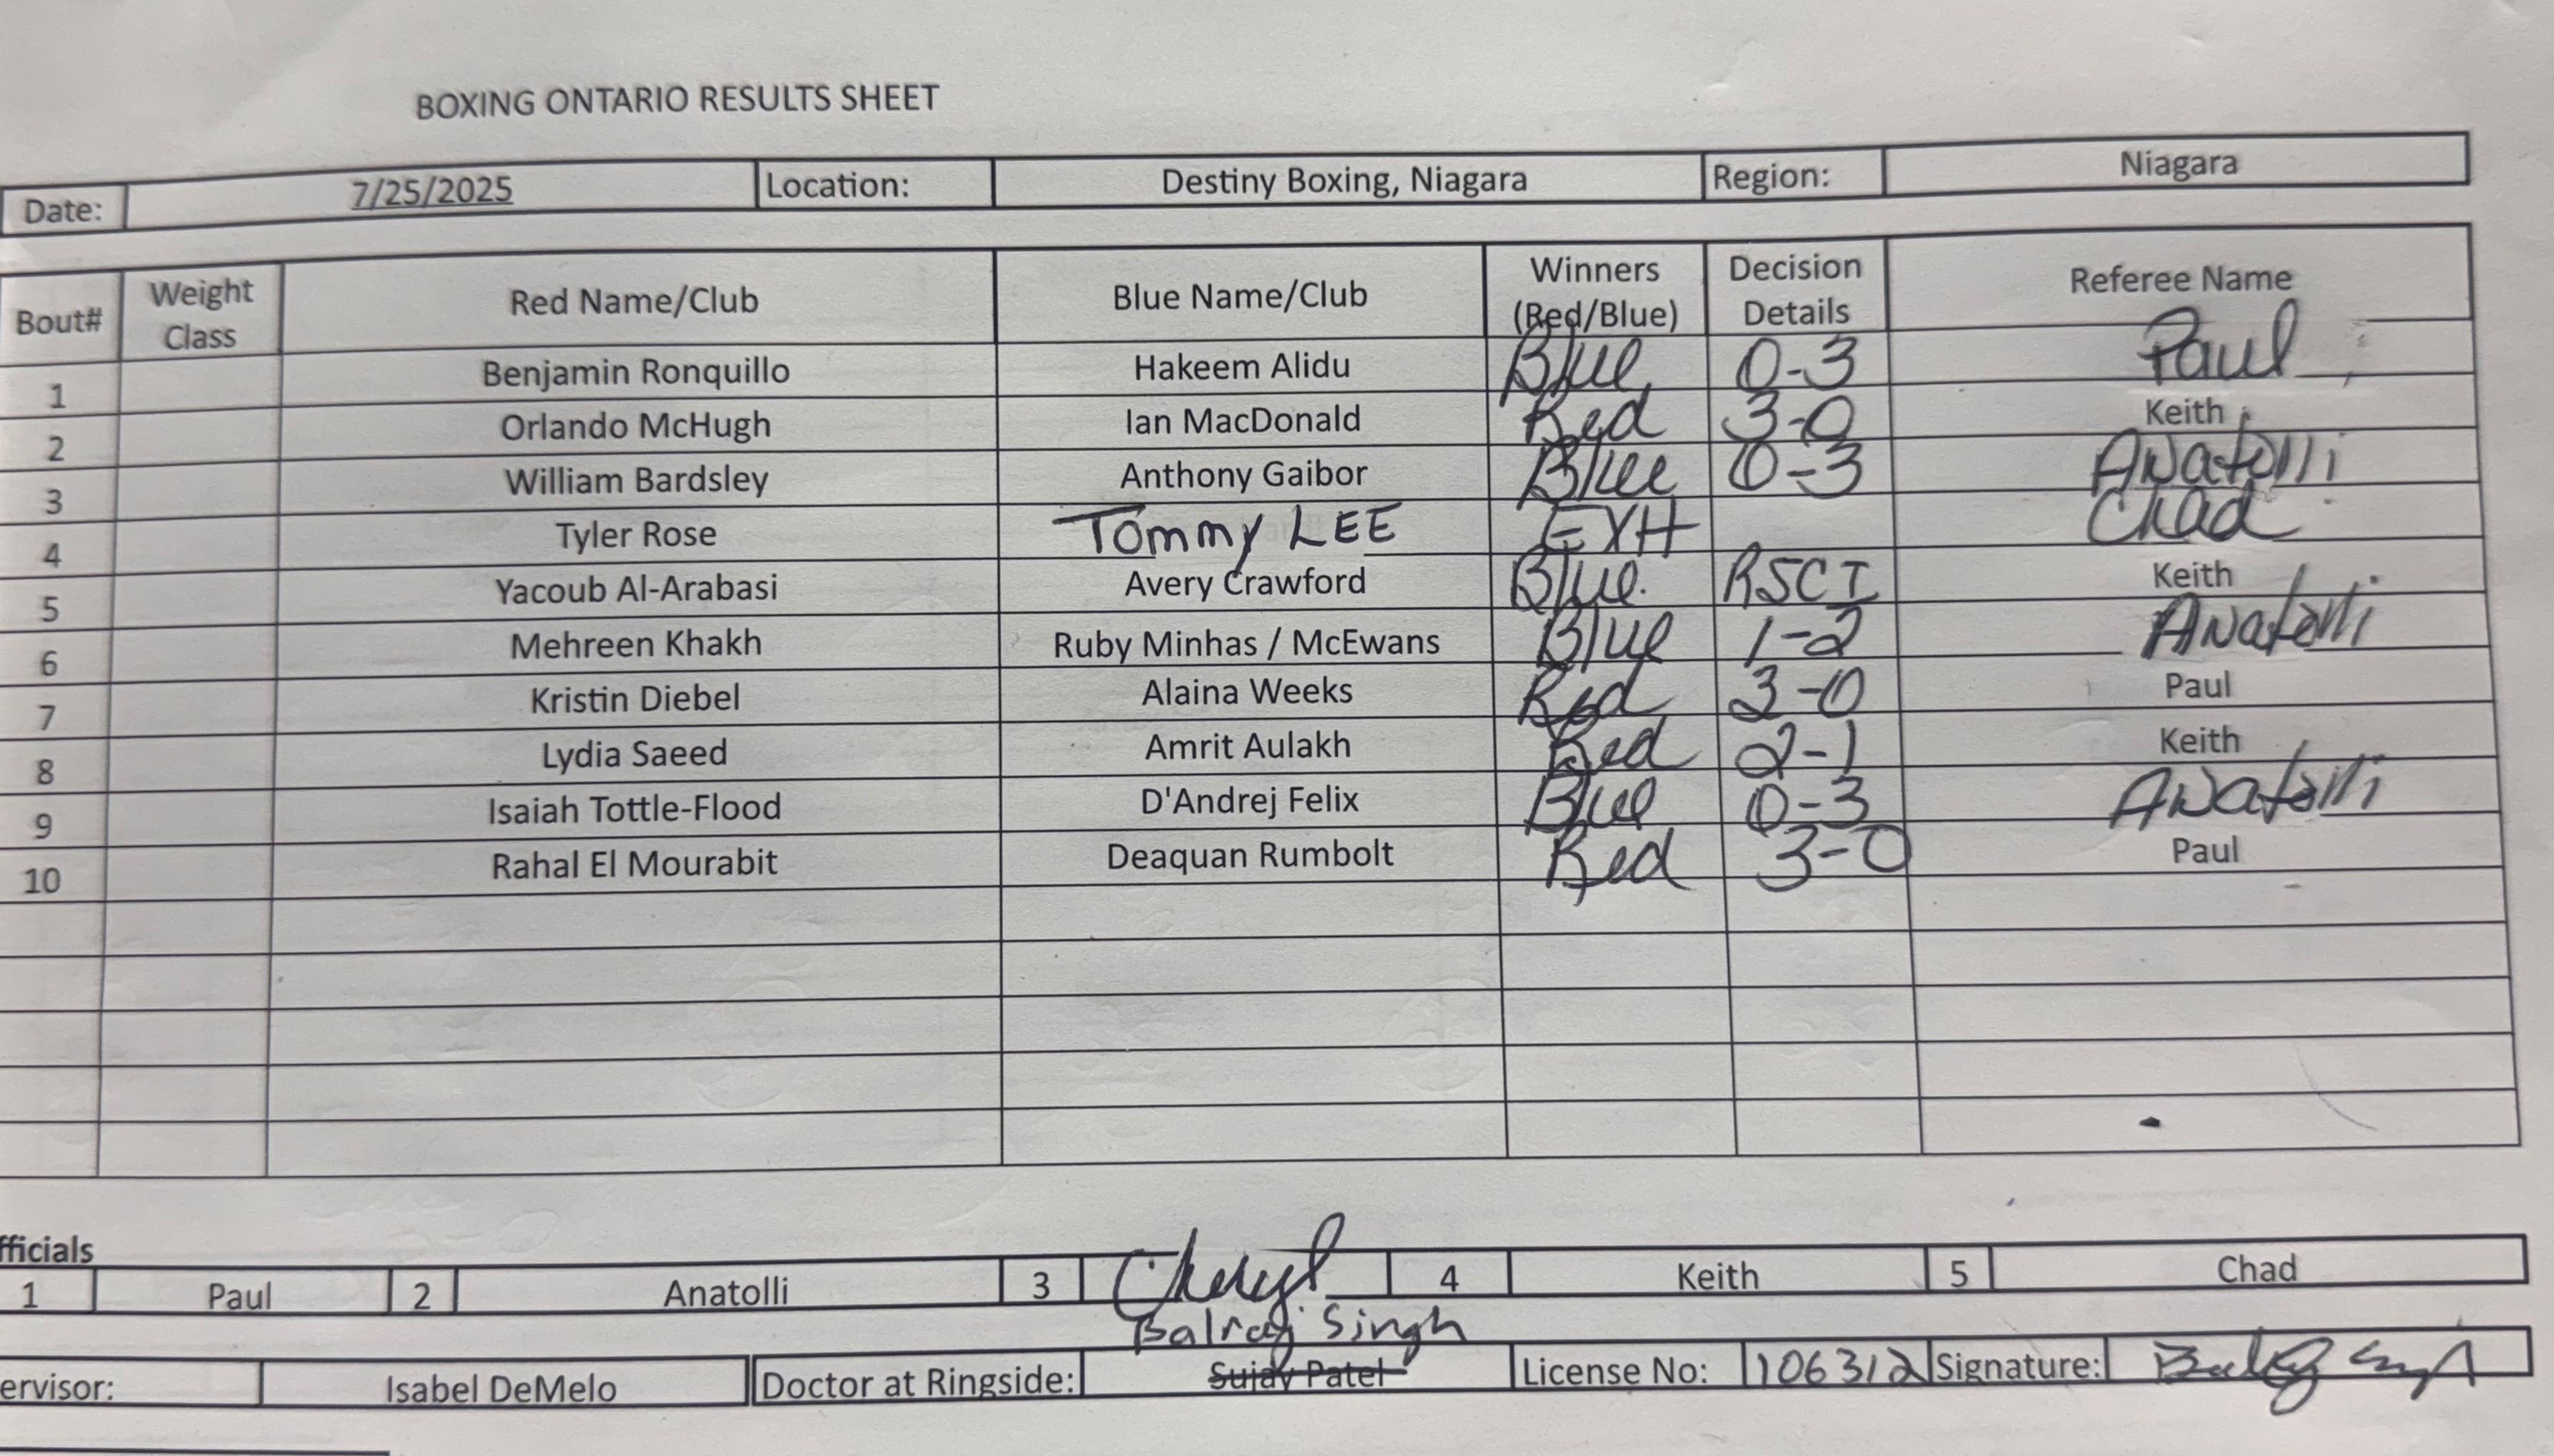 BOXING ONTARIO RESULTS SHEET
Date: 7/25/2025 Location: Destiny Boxing, Niagara Region: Niagara
Bout# Weight Class Red Name/Club Blue Name/Club Winners (Red/Blue) Decision Details Referee Name
1 Benjamin Ronquillo Hakeem Alidu Blue 0-3 Paul
2 Orlando McHugh Ian MacDonald Red 3-0 Keith
3 William Bardsley Anthony Gaibor Blue 0-3 Anatolli
4 Tyler Rose Tommy LEE EXH Chad
5 Yacoub Al-Arabasi Avery Crawford Blue. RSCI Keith
6 Mehreen Khakh Ruby Minhas / McEwans Blue 1-2 Anatolli
7 Kristin Diebel Alaina Weeks Red 3-0 Paul
8 Lydia Saeed Amrit Aulakh Red 2-1 Keith
9 Isaiah Tottle-Flood D'Andrej Felix Blue 0-3 Anatolli
10 Rahal El Mourabit Deaquan Rumbolt Red 3-0 Paul
fficials
1 Paul 2 Anatolli 3 Cheryl 4 Keith 5 Chad
Balraj Singh
ervisor: Isabel DeMelo Doctor at Ringside: Sujay Patel License No: 106312 Signature: